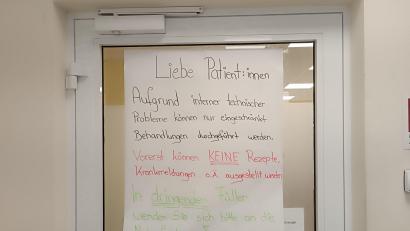 Liebe Patient:innen
Aufgrund interner technischer
Probleme können nur eingeschränkt
Behandlungen durchgeführt werden.
Vorerst können KEINE Rezepte,
Krankmeldungen o.Ä. ausgestellt werden
In dringenden Fällen
wenden Sie sich bitte an die